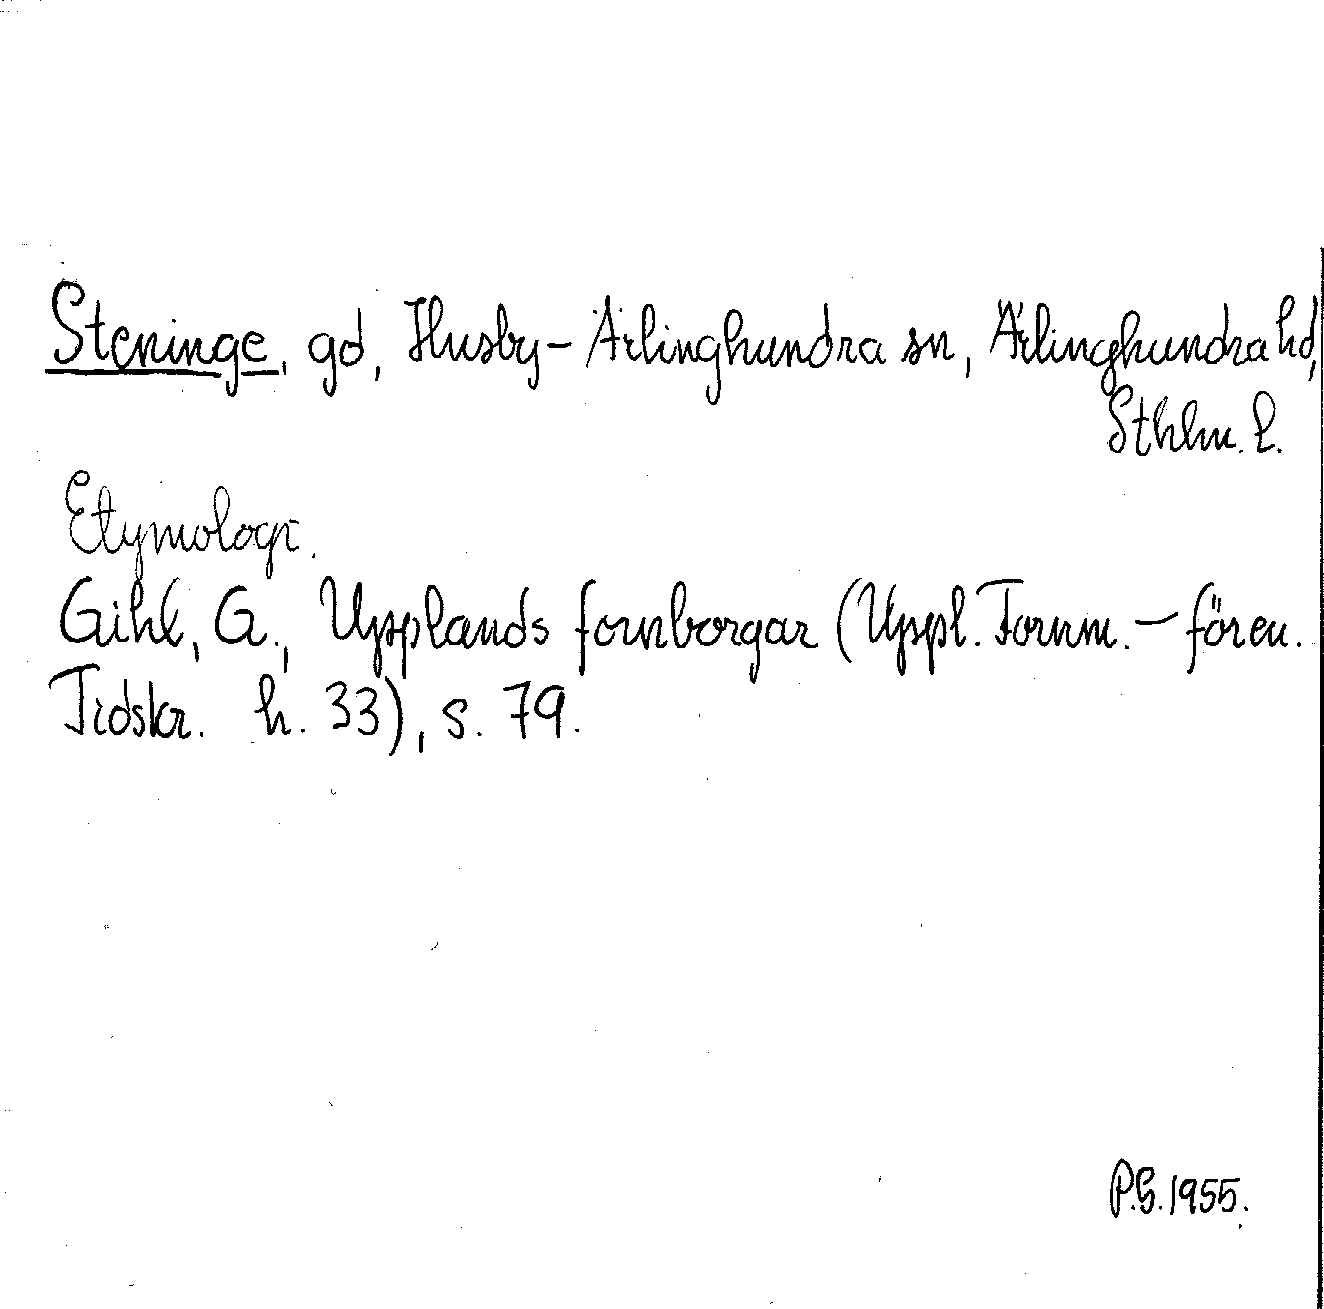 Steninge, gd, Husby-Ärlinghundra sn, Ärlinghundra hd,
Sthlm. l.
Etymologi.
Gihl, G., Upplands fornborgar (Uppl. Fornm.-fören.
Tidskr. h. 33), s. 79.
P.G. 1955.